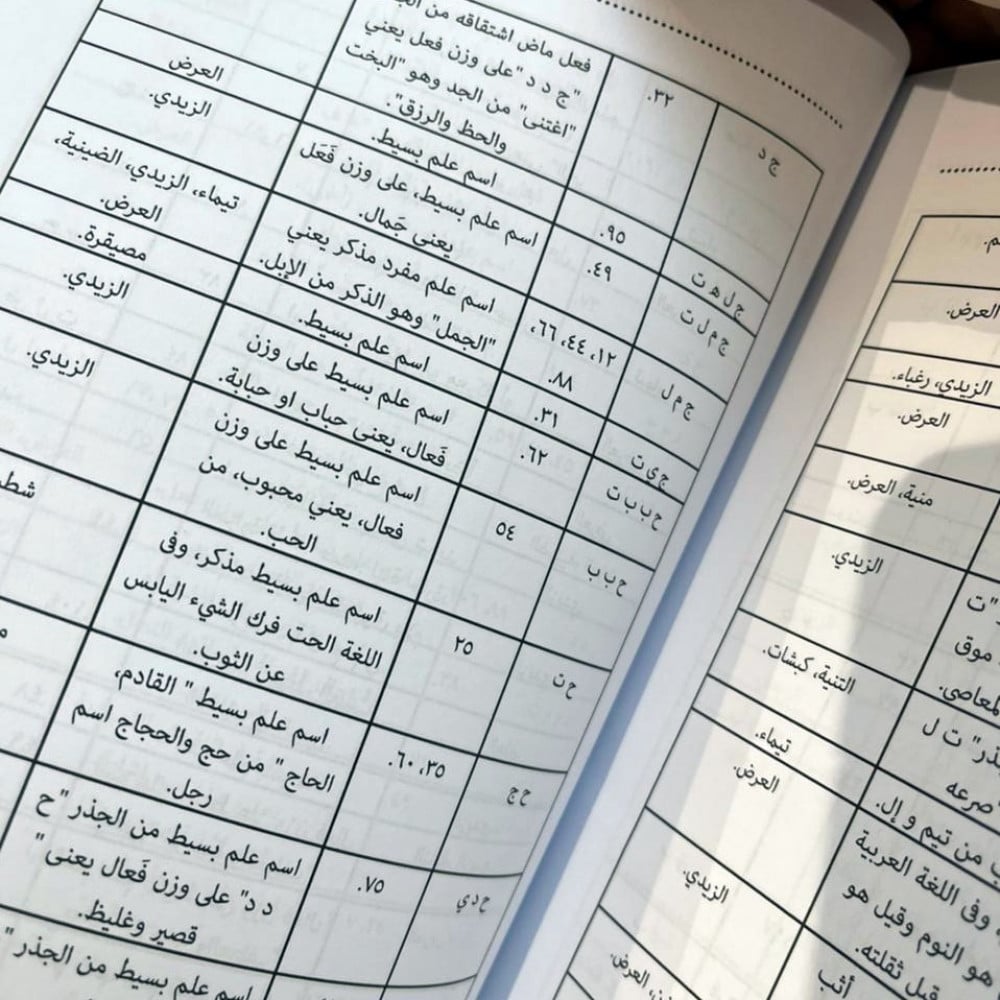 ج د
٣٢.
فعل ماض اشتقاقه من
"ج د د "على وزن فعل يعني
"اغتنى" من الجد وهو "البخت
والحظ والرزق".
ج ل ه ت
٩٥.
اسم علم بسيط.
العرض
ج م ل ت
٤٩.
اسم علم بسيط، على وزن فَعَل
يعني جَمال.
الزيدي.
ج م ل
١٢، ٤٤، ٦٦،
٨٨.
اسم علم مفرد مذكر يعني
"الجمل" وهو الذكر من الإبل.
تيماء، الزيدي، الضينية،
العرض.
ج ي ت
٣١.
اسم علم بسيط.
مصيقرة.
ح ب ب ت
٦٢.
اسم علم بسيط على وزن
فَعال، يعنى حباب او حبابة.
الزيدي.
ح ب ب
٥٤
اسم علم بسيط على وزن
فعال، يعني محبوب، من
الحب.
الزيدي.
ح ت
٢٥
اسم علم بسيط مذكر، وفى
اللغة الحت فرك الشيء اليابس
عن الثوب.
ح ج
٣٥، ٦٠.
اسم علم بسيط " القادم،
الحاج " من حج والحجاج اسم
رجل.
ح د ي
٧٥.
اسم علم بسيط من الجذر "ح
د د" على وزن فَعال يعنى "
قصير وغليظ.
اسم علم بسيط من الجذر "
العرض.
الزيدي، رغباء.
العرض.
منية، العرض.
الزيدي.
"ت
موق
لمعاصى.
التنية، كبشات.
ت ل
صرعه
تيماء.
من تيم و إل.
العرض.
وفى اللغة العربية
هو النوم وقيل هو
قبل ثقلته.
الزيدي.
أثب
العرض.